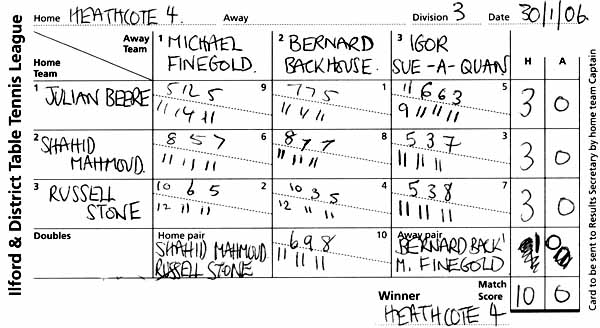 Ilford & District Table Tennis League
Home HEATHCOTE 4. Away Division 3 Date 30/1/06
Away Team 1 MICHAEL FINEGOLD. 2 BERNARD BACKHOUSE. 3 IGOR SUE-A-QUAN H A
Home Team
1 JULIAN BEERE 5 12 5 9 7 7 5 1 11 6 6 3 5 3 0
11 14 11 11 11 11 9 11 11 11
2 SHAHID MAHMOUD. 8 5 7 6 8 7 7 8 5 3 7 3 3 0
11 11 11 11 11 11 11 11 11
3 RUSSELL STONE 10 6 5 2 10 3 5 4 5 3 8 7 3 0
12 11 11 12 11 11 11 11 11
Doubles Home pair 6 9 8 10 Away pair 1 0
SHAHID MAHMOUD 11 11 11 BERNARD BACK'
RUSSELL STONE M. FINEGOLD
Winner Match Score 10 0
HEATHCOTE 4
Card to be sent to Results Secretary by home team Captain